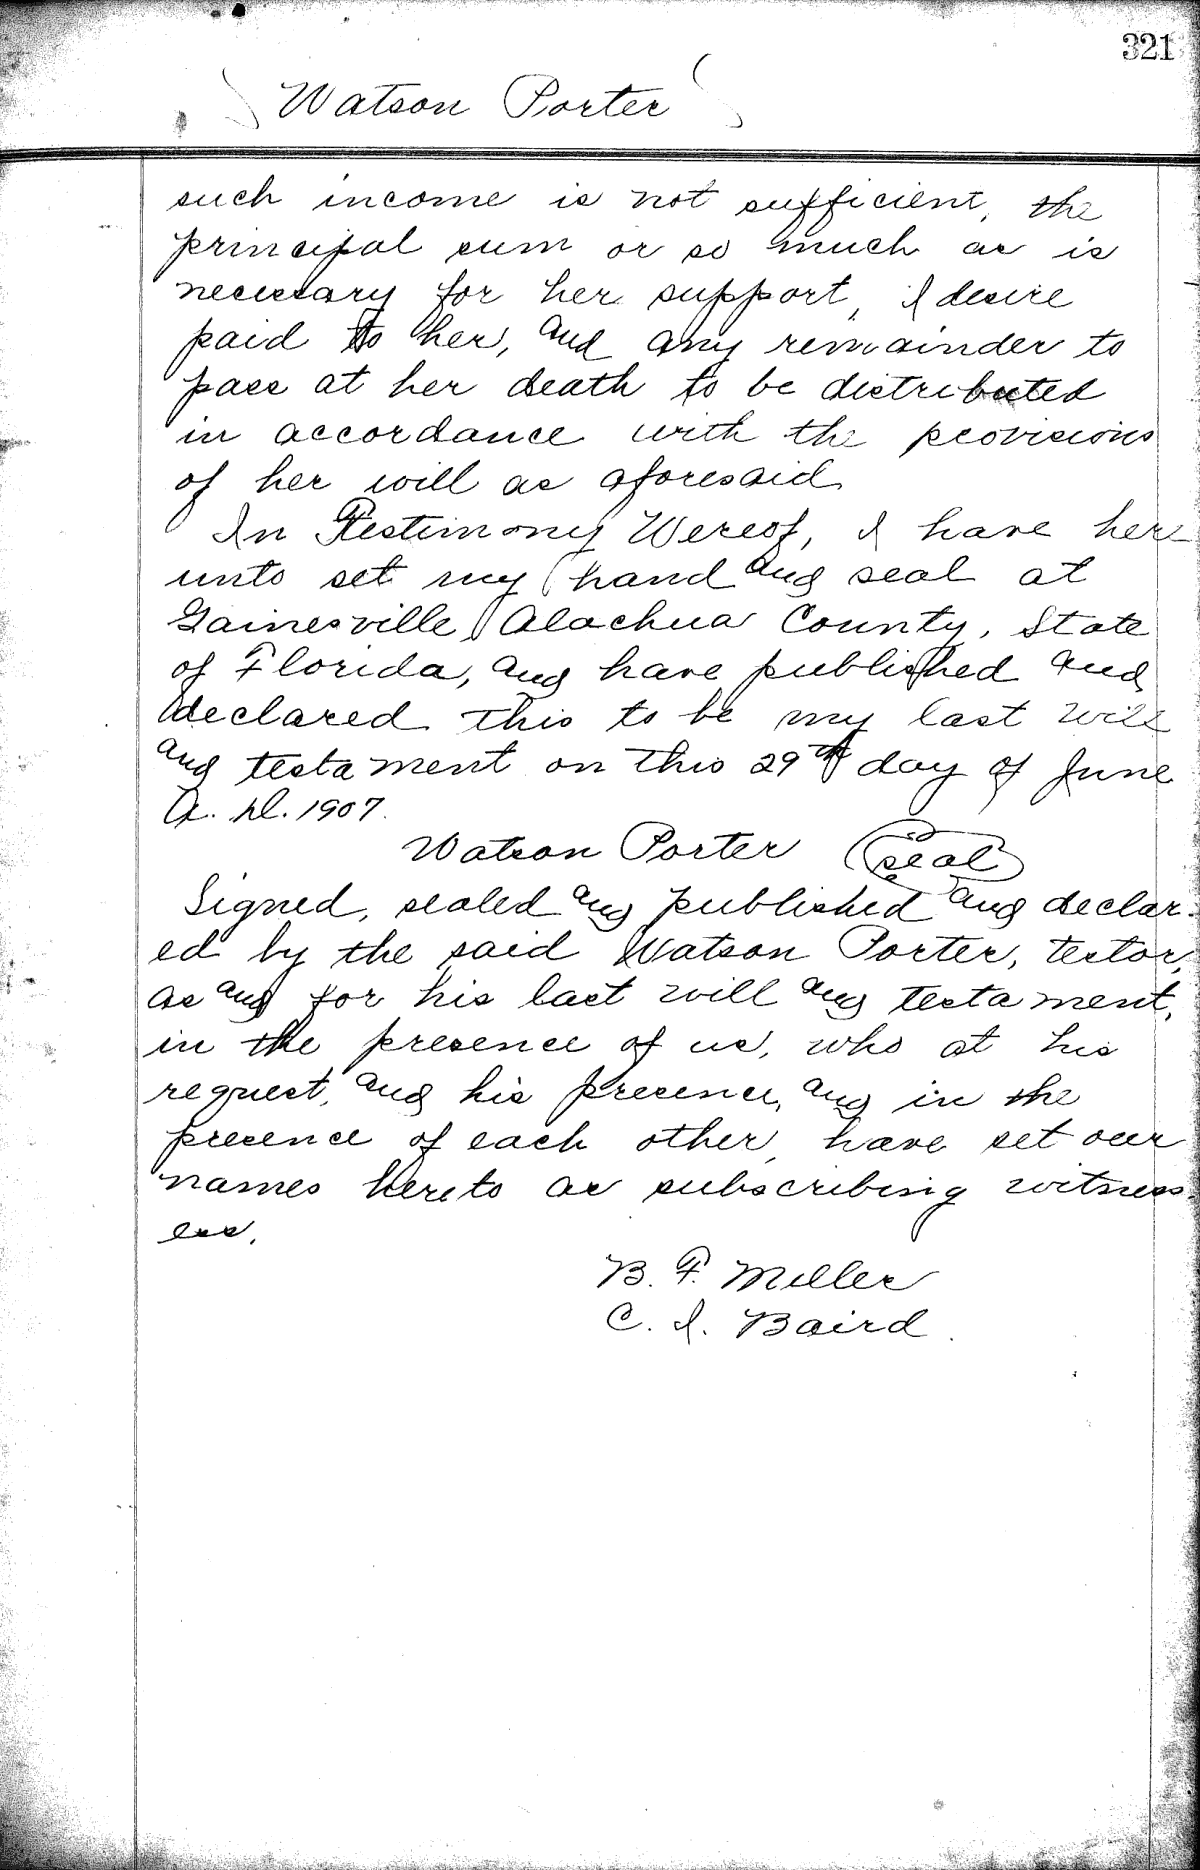 321
Watson Porter
such income is not sufficient, the
principal sum or so much as is
necessary for her support, I desire
paid to her, and any remainder to
pass at her death to be distributed
in accordance with the provisions
of her will as aforesaid
In Testimony Wereof, I have here
unto set my hand and seal at
Gainesville, Alachua County, State
of Florida, and have published and
declared this to be my last will
and testament on this 29th day of June
A. D. 1907.
Watson Porter (seal)
Signed, sealed and published and declar-
ed by the said Watson Porter, testor,
as and for his last will and testament,
in the presence of us, who at his
request, and his presence, and in the
presence of each other, have set our
names hereto as subscribing witness-
es.
B. F. Miller
C. I. Baird.